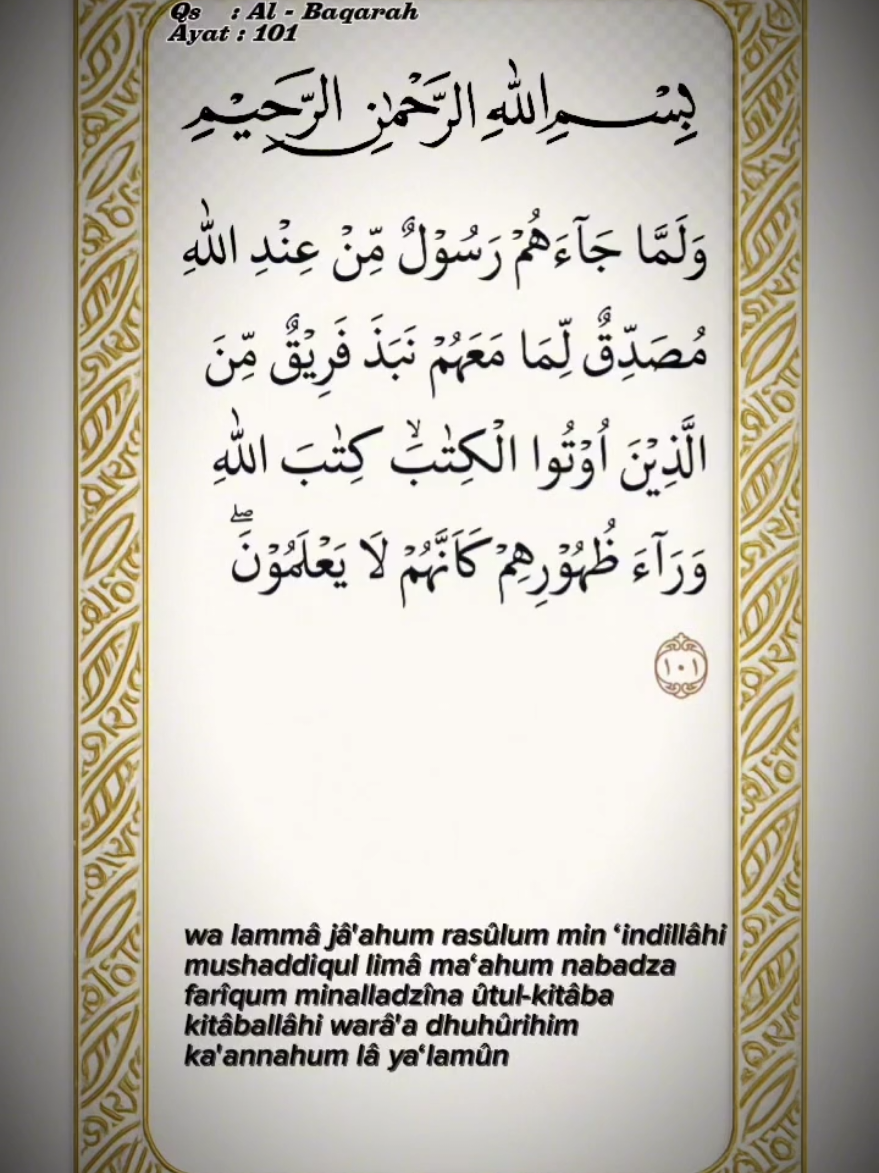 Qs : Al - Baqarah
Ayat : 101
بِسْمِ اللهِ الرَّحْمٰنِ الرَّحِيْمِ
وَلَمَّا جَاۤءَهُمْ رَسُوْلٌ مِّنْ عِنْدِ اللهِ
مُصَدِّقٌ لِّمَا مَعَهُمْ نَبَذَ فَرِيْقٌ مِّنَ
الَّذِيْنَ اُوْتُوا الْكِتٰبَۙ كِتٰبَ اللهِ
وَرَاۤءَ ظُهُوْرِهِمْ كَاَنَّهُمْ لَا يَعْلَمُوْنَۖ
١٠١
wa lammâ jâ'ahum rasûlum min ‘indillâhi
mushaddiqul limâ ma‘ahum nabadza
farîqum minalladzîna ûtul-kitâba
kitâballâhi warâ'a dhuhûrihim
ka'annahum lâ ya‘lamûn